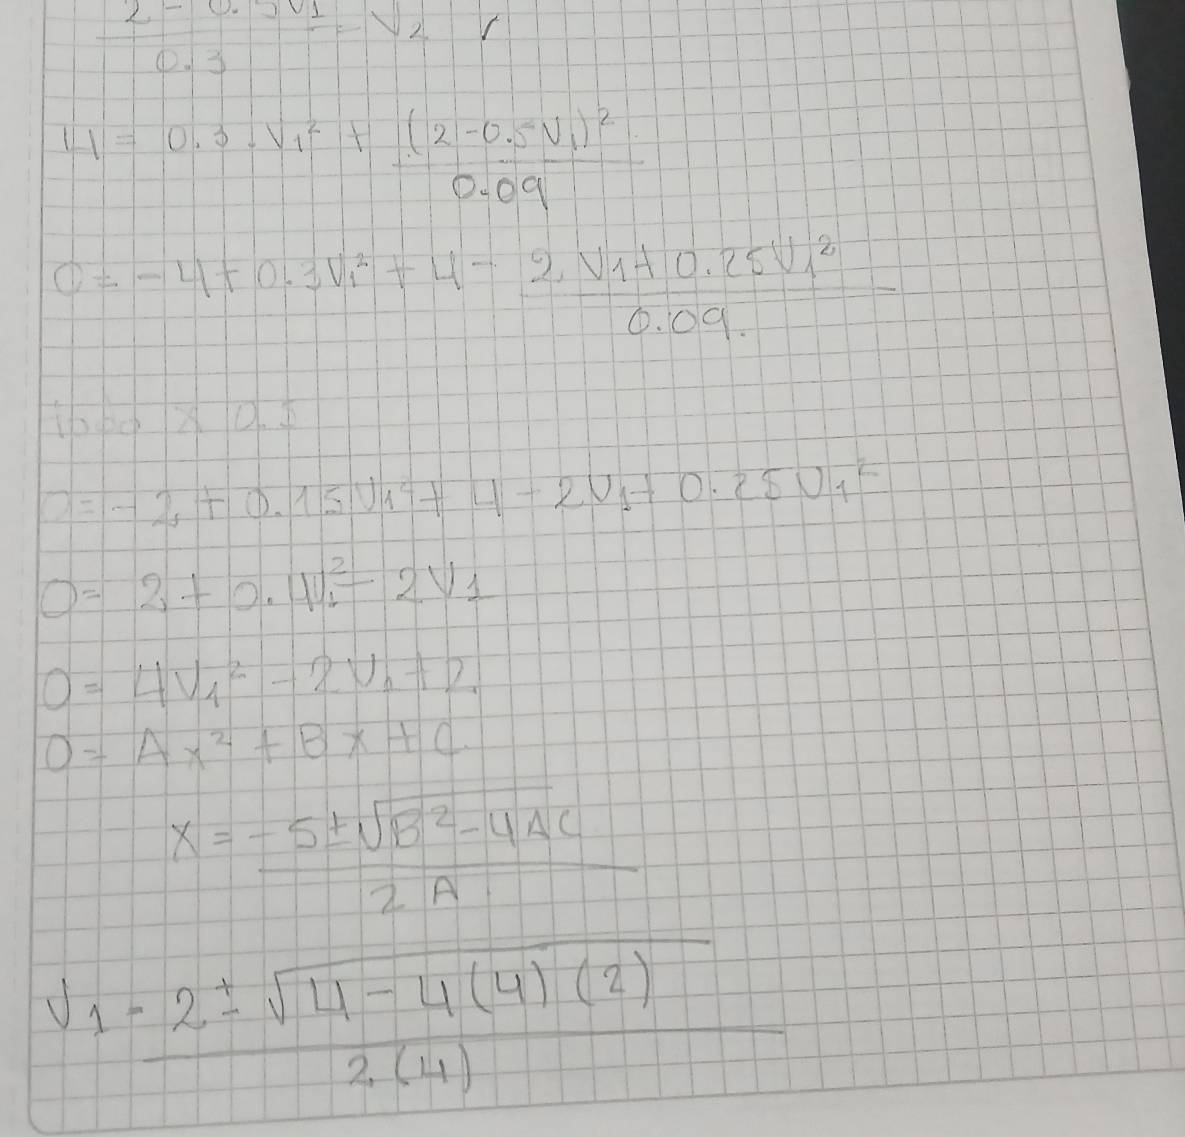 2 - 0.5V₁ = V₂
0.3
4 = 0.3 · V₁² + (2-0.5V₁)²
0.09
0 = -4 + 0.3V₁² + 4 - 2V₁ + 0.25V₁²
0.09.
todo x 0.5
0 = -2 + 0.15V₁² + 4 - 2V₁ + 0.25V₁²
0 = 2 + 0.4V₁² - 2V₁
0 = 4V₁² - 2V₁ + 2
0 = Ax² + Bx + C
x = -5 ± √B² - 4AC
2A
V₁ = 2 ± √4 - 4(4)(2)
2(4)